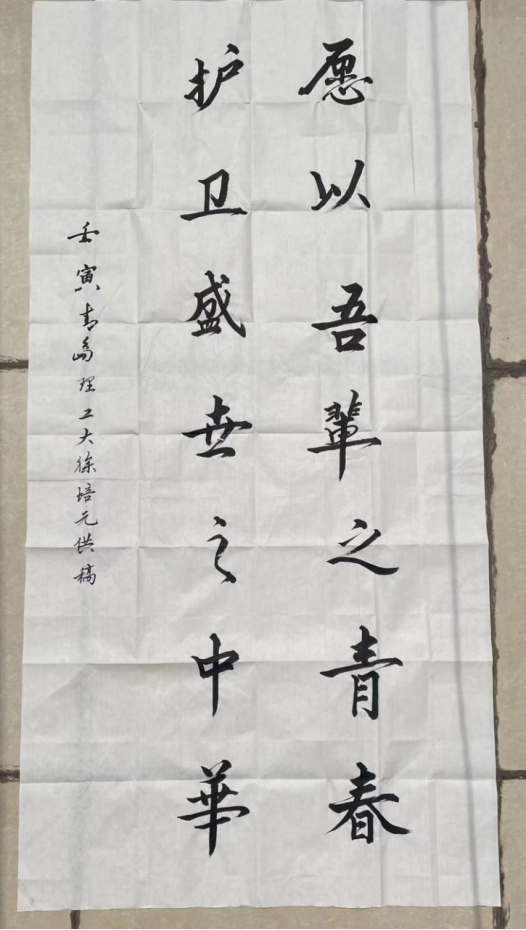 愿以吾輩之青春
护卫盛世之中華
壬寅青島理工大徐培元供稿